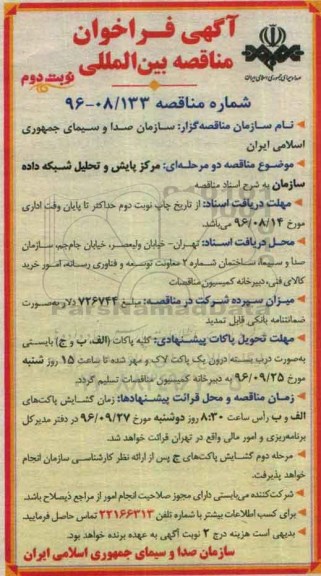 آگهی فراخوان
مناقصه بین‌المللی
نوبت دوم
صدا و سیمای جمهوری اسلامی ایران
شماره مناقصه ۹۶-۰۸/۱۳۳
نام سازمان مناقصه‌گزار: سازمان صدا و سیمای جمهوری
اسلامی ایران
موضوع مناقصه دو مرحله‌ای: مرکز پایش و تحلیل شبکه داده
سازمان به شرح اسناد مناقصه
مهلت دریافت اسناد: از تاریخ چاپ نوبت دوم حداکثر تا پایان وقت اداری
مورخ ۹۶/۰۸/۱۴ می‌باشد.
محل دریافت اسناد: تهران- خیابان ولیعصر، خیابان جام‌جم، سازمان
صدا و سیما، ساختمان شماره ۲ معاونت توسعه و فناوری رسانه، امور خرید
کالای فنی، دبیرخانه کمیسیون مناقصات
میزان سپرده شرکت در مناقصه: مبلغ ۷۲۶۷۴۴ دلار بصورت
ضمانتنامه بانکی قابل تمدید
مهلت تحویل پاکات پیشنهادی: کلیه پاکات (الف، ب و ج) بایستی
به‌صورت درب بسته درون یک پاکت لاک و مهر شده تا ساعت ۱۵ روز شنبه
مورخ ۹۶/۰۹/۲۵ به دبیرخانه کمیسیون مناقصات تسلیم گردد.
زمان مناقصه و محل قرائت پیشنهادها: زمان گشایش پاکت‌های
الف و ب رأس ساعت ۸:۳۰ روز دوشنبه مورخ ۹۶/۰۹/۲۷ در دفتر مدیرکل
برنامه‌ریزی و امور مالی واقع در تهران قرائت خواهد شد.
مرحله دوم گشایش پاکت‌های ج پس از ارائه نظر کارشناسی سازمان انجام
خواهد پذیرفت.
شرکت‌کننده می‌بایستی دارای مجوز صلاحیت انجام امور از مراجع ذیصلاح باشد.
برای کسب اطلاعات بیشتر با شماره تلفن ۲۲۱۶۶۳۱۳ تماس حاصل فرمایید.
بدیهی است هزینه درج ۲ نوبت آگهی به عهده برنده خواهد بود.
سازمان صدا و سیمای جمهوری اسلامی ایران